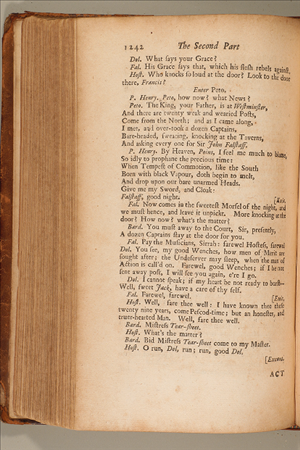 1242 The Second Part
Dol. What says your Grace?
Fal. His Grace says that, which his flesh rebels against.
Host. Who knocks so loud at the door? Look to the door
there, Francis?
Enter Peto.
P. Henry. Peto, how now? what News?
Peto. The King, your Father, is at Westminster,
And there are twenty weak and wearied Posts,
Come from the North; and as I came along,
I met, and over-took a dozen Captains,
Bare-headed, sweating, knocking at the Taverns,
And asking every one for Sir John Falstaff.
P. Henry. By Heaven, Poins, I feel me much to blame,
So idly to prophane the precious time:
When Tempest of Commotion, like the South
Born with black Vapour, doth begin to melt,
And drop upon our bare unarmed Heads.
Give me my Sword, and Cloak:
Falstaff, good night. [Exit.
Fal. Now comes in the sweetest Morsel of the night, and
we must hence, and leave it unpickt. More knocking at the
door? How now? what's the matter?
Bard. You must away to the Court, Sir, presently,
A dozen Captains stay at the door for you.
Fal. Pay the Musicians, Sirrah: farewel Hostess, farewel
Dol. You see, my good Wenches, how men of Merit are
sought after; the Undeserver may sleep, when the man of
Action is call'd on. Farewel, good Wenches; if I be not
sent away post, I will see you again, e're I go.
Dol. I cannot speak; if my heart be not ready to burst—
Well, sweet Jack, have a care of thy self.
Fal. Farewel, farewel. [Exit.
Host. Well, fare thee well: I have known thee these
twenty nine years, come Pescod-time; but an honester, and
truer-hearted Man. Well, fare thee well.
Bard. Mistress Tear-sheet.
Host. What's the matter?
Bard. Bid Mistress Tear-sheet come to my Master.
Host. O run, Dol, run; run, good Dol.
[Exeunt.
ACT